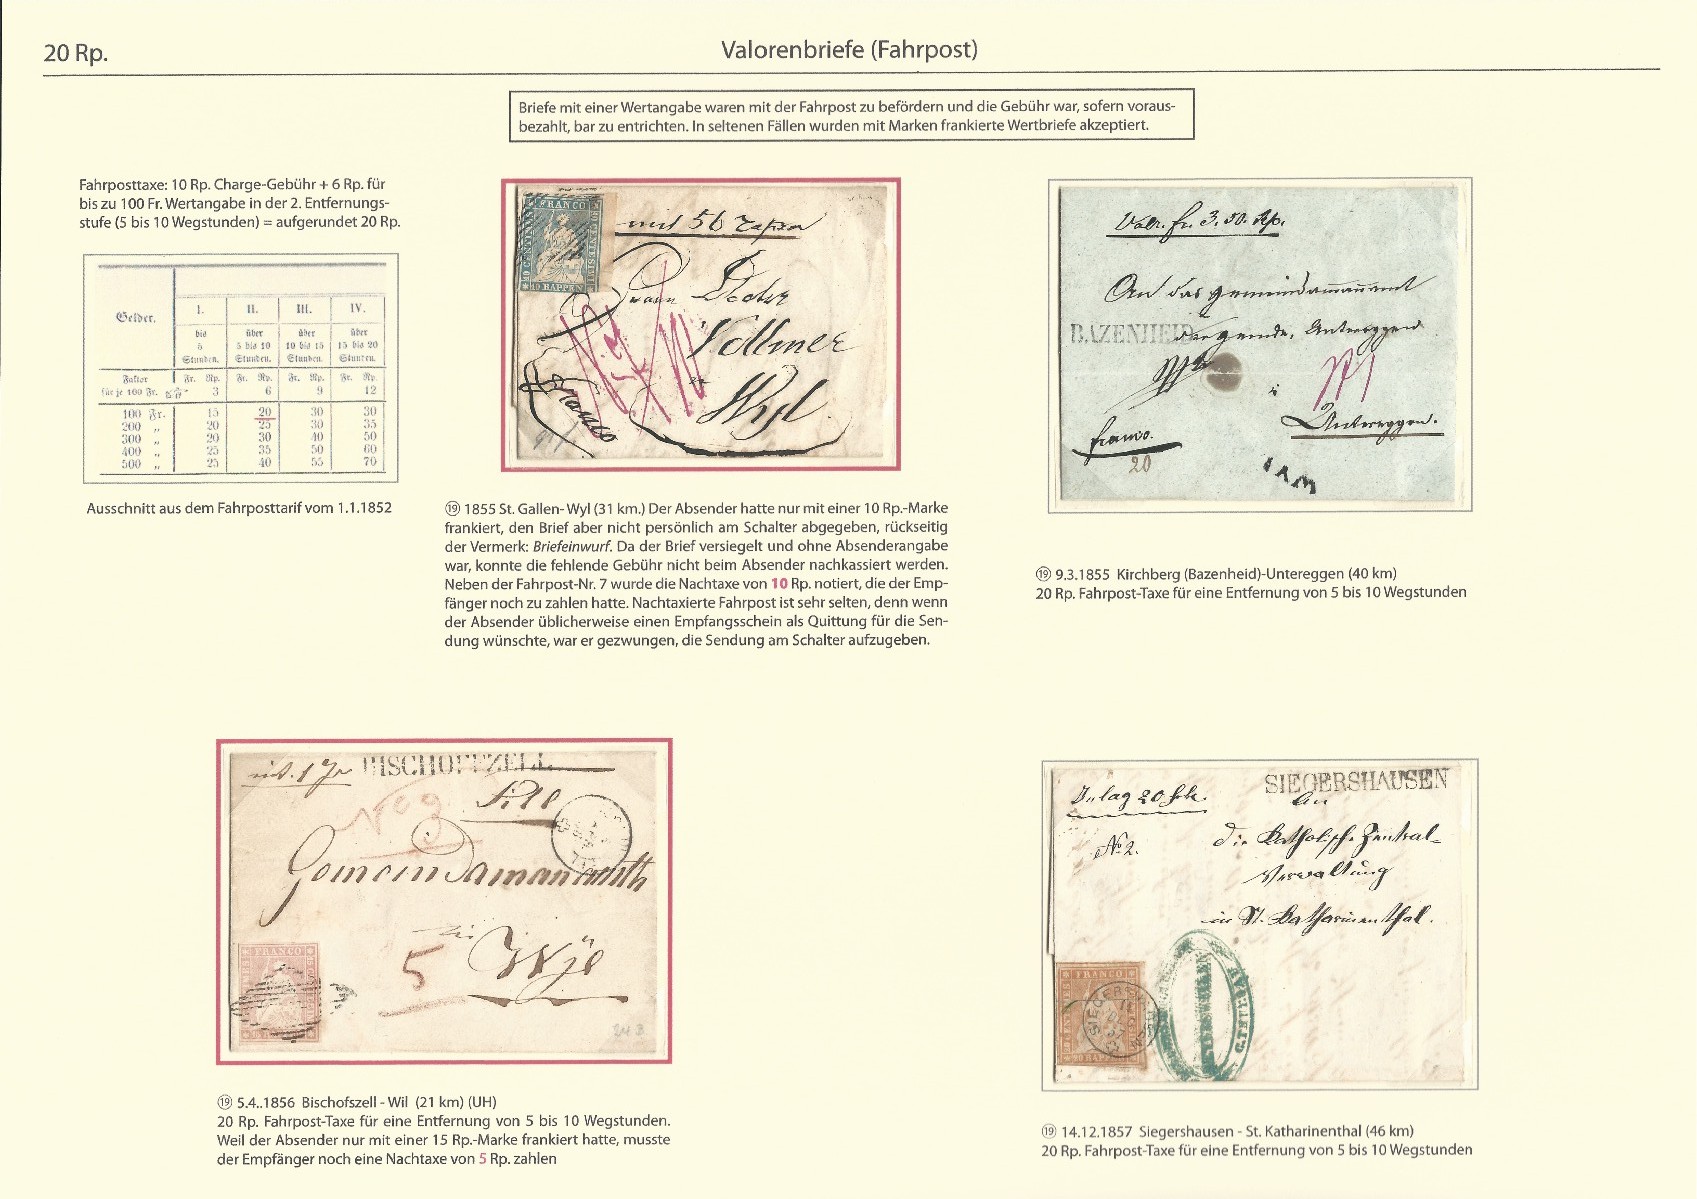 20 Rp.
Valorenbriefe (Fahrpost)
Briefe mit einer Wertangabe waren mit der Fahrpost zu befördern und die Gebühr war, sofern voraus-
bezahlt, bar zu entrichten. In seltenen Fällen wurden mit Marken frankierte Wertbriefe akzeptiert.
Fahrposttaxe: 10 Rp. Charge-Gebühr + 6 Rp. für
bis zu 100 Fr. Wertangabe in der 2. Entfernungs-
stufe (5 bis 10 Wegstunden) = aufgerundet 20 Rp.
Gelder. I. II. III. IV.
bis über über über
5 5 bis 10 10 bis 15 15 bis 20
Stunden. Stunden. Stunden. Stunden.
Faktor Fr. Rp. Fr. Rp. Fr. Rp. Fr. Rp.
für je 100 Fr. 3 6 9 12
100 Fr. 15 20 30 30
200 „ 20 25 30 35
300 „ 20 30 40 50
400 „ 25 35 50 60
500 „ 25 40 55 70
Ausschnitt aus dem Fahrposttarif vom 1.1.1852
FRANCO
10 RAPPEN
mit 56
Vollmer
Wyl
Franco
⑲ 1855 St. Gallen- Wyl (31 km.) Der Absender hatte nur mit einer 10 Rp.-Marke
frankiert, den Brief aber nicht persönlich am Schalter abgegeben, rückseitig
der Vermerk: Briefeinwurf. Da der Brief versiegelt und ohne Absenderangabe
war, konnte die fehlende Gebühr nicht beim Absender nachkassiert werden.
Neben der Fahrpost-Nr. 7 wurde die Nachtaxe von 10 Rp. notiert, die der Emp-
fänger noch zu zahlen hatte. Nachtaxierte Fahrpost ist sehr selten, denn wenn
der Absender üblicherweise einen Empfangsschein als Quittung für die Sen-
dung wünschte, war er gezwungen, die Sendung am Schalter aufzugeben.
Valr. fr. 3. 50. Rp.
An das Gemeindamannamt
BAZENHEID
Untereggen
Untereggen.
franco.
20
⑲ 9.3.1855 Kirchberg (Bazenheid)-Untereggen (40 km)
20 Rp. Fahrpost-Taxe für eine Entfernung von 5 bis 10 Wegstunden
mit. 1 Fr
BISCHOFFZELL
Gemeindamannamth
Wyl
5
FRANCO
24 3
⑲ 5.4..1856 Bischofszell - Wil (21 km) (UH)
20 Rp. Fahrpost-Taxe für eine Entfernung von 5 bis 10 Wegstunden.
Weil der Absender nur mit einer 15 Rp.-Marke frankiert hatte, musste
der Empfänger noch eine Nachtaxe von 5 Rp. zahlen
SIEGERSHAUSEN
An
die Katholische Zentral-
Verwaltung
in St. Katharinenthal.
No 2.
FRANCO
20 RAPPEN
⑲ 14.12.1857 Siegershausen - St. Katharinenthal (46 km)
20 Rp. Fahrpost-Taxe für eine Entfernung von 5 bis 10 Wegstunden